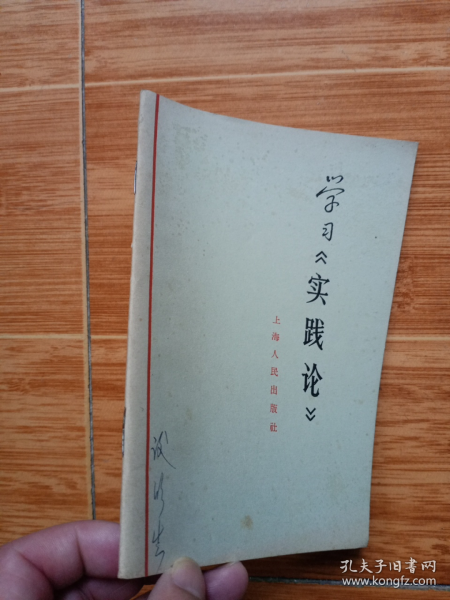 学习《实践论》
上海人民出版社
孔夫子旧书网
www.kongfz.com